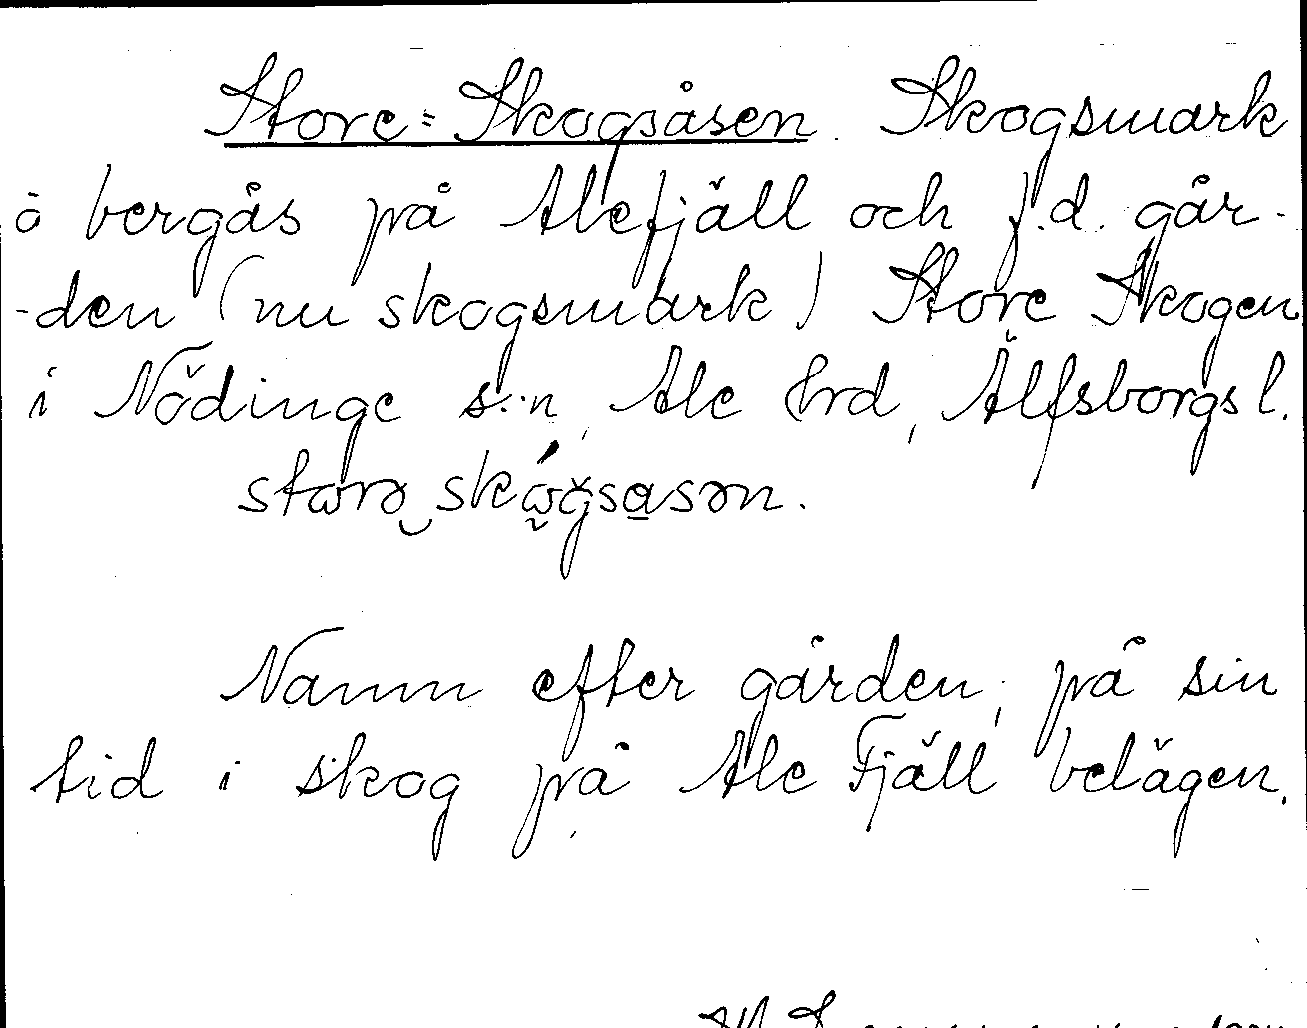 Store-Skogsåsen. Skogsmark
å bergås på Alefjäll och f.d. går-
-den (nu skogsmark) Store Skogen
i Nödinge s:n, Ale hrd, Älfsborgs l.
storə skógsasən.
Namn efter gården, på sin
tid i skog på Ale Fjäll belägen.